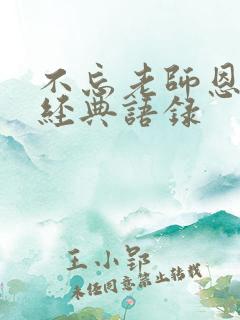 不忘老師恩
經典語錄
王小郢
未經同意禁止轉載